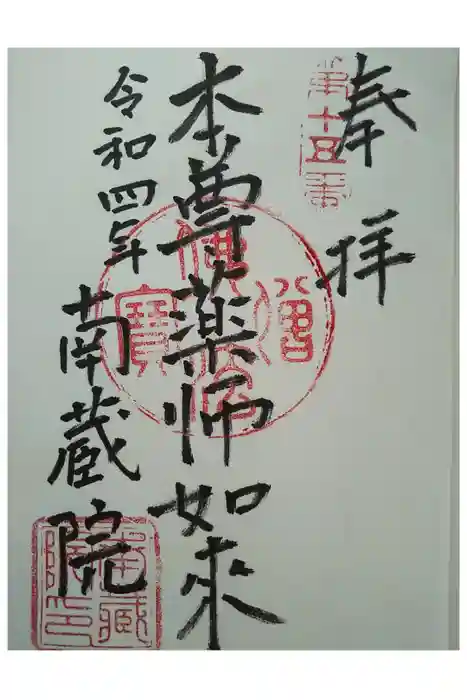 奉拝
第十五番
本尊薬師如来
佛法僧寶
令和四年
南蔵院
南蔵院印